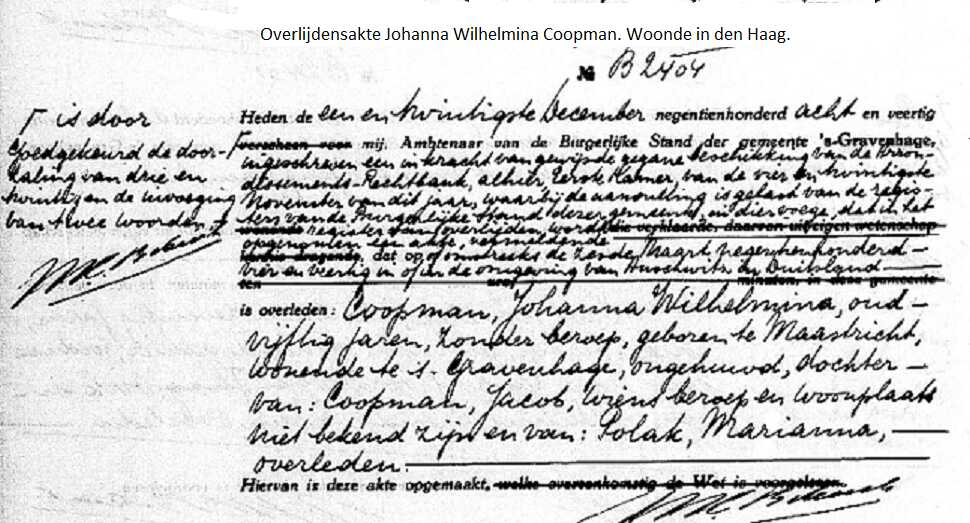 Overlijdensakte Johanna Wilhelmina Coopman. Woonde in den Haag.
№ B2404
Heden de een en twintigste December negentienhonderd acht en veertig
verscheen voor mij, Ambtenaar van de Burgerlijke Stand der gemeente 's-Gravenhage,
ingeschreven een in kracht van gewijsde gegane beschikking van de Arron-
dissements-Rechtbank, alhier, Eerste Kamer, van de vier en twintigste
November van dit jaar, waarbij de aanvulling is gelast van de regis-
ters van de Burgerlijke Stand dezer gemeente, in dier voege, dat in het
register van overlijden, wordt die verklaarde, daarvan uit eigen wetenschap
opgenomen een akte, vermeldende
dat op of omstreeks de zesde Maart negentienhonderd-
vier en veertig in of in de omgeving van Auschwitz in Duitsland
uur minuten, in deze gemeente
is overleden: Coopman, Johanna Wilhelmina, oud-
vijftig jaren, zonder beroep, geboren te Maastricht,
wonende te 's-Gravenhage, ongehuwd, dochter-
van: Coopman, Jacob, wiens beroep en woonplaats
niet bekend zijn en van: Polak, Marianna,
overleden.
Hiervan is deze akte opgemaakt, welke overeenkomstig de Wet is voorgelezen.
Γ is door
goedgekeurd de door-
haling van drie en
twintig en de invoeging
van twee woorden.